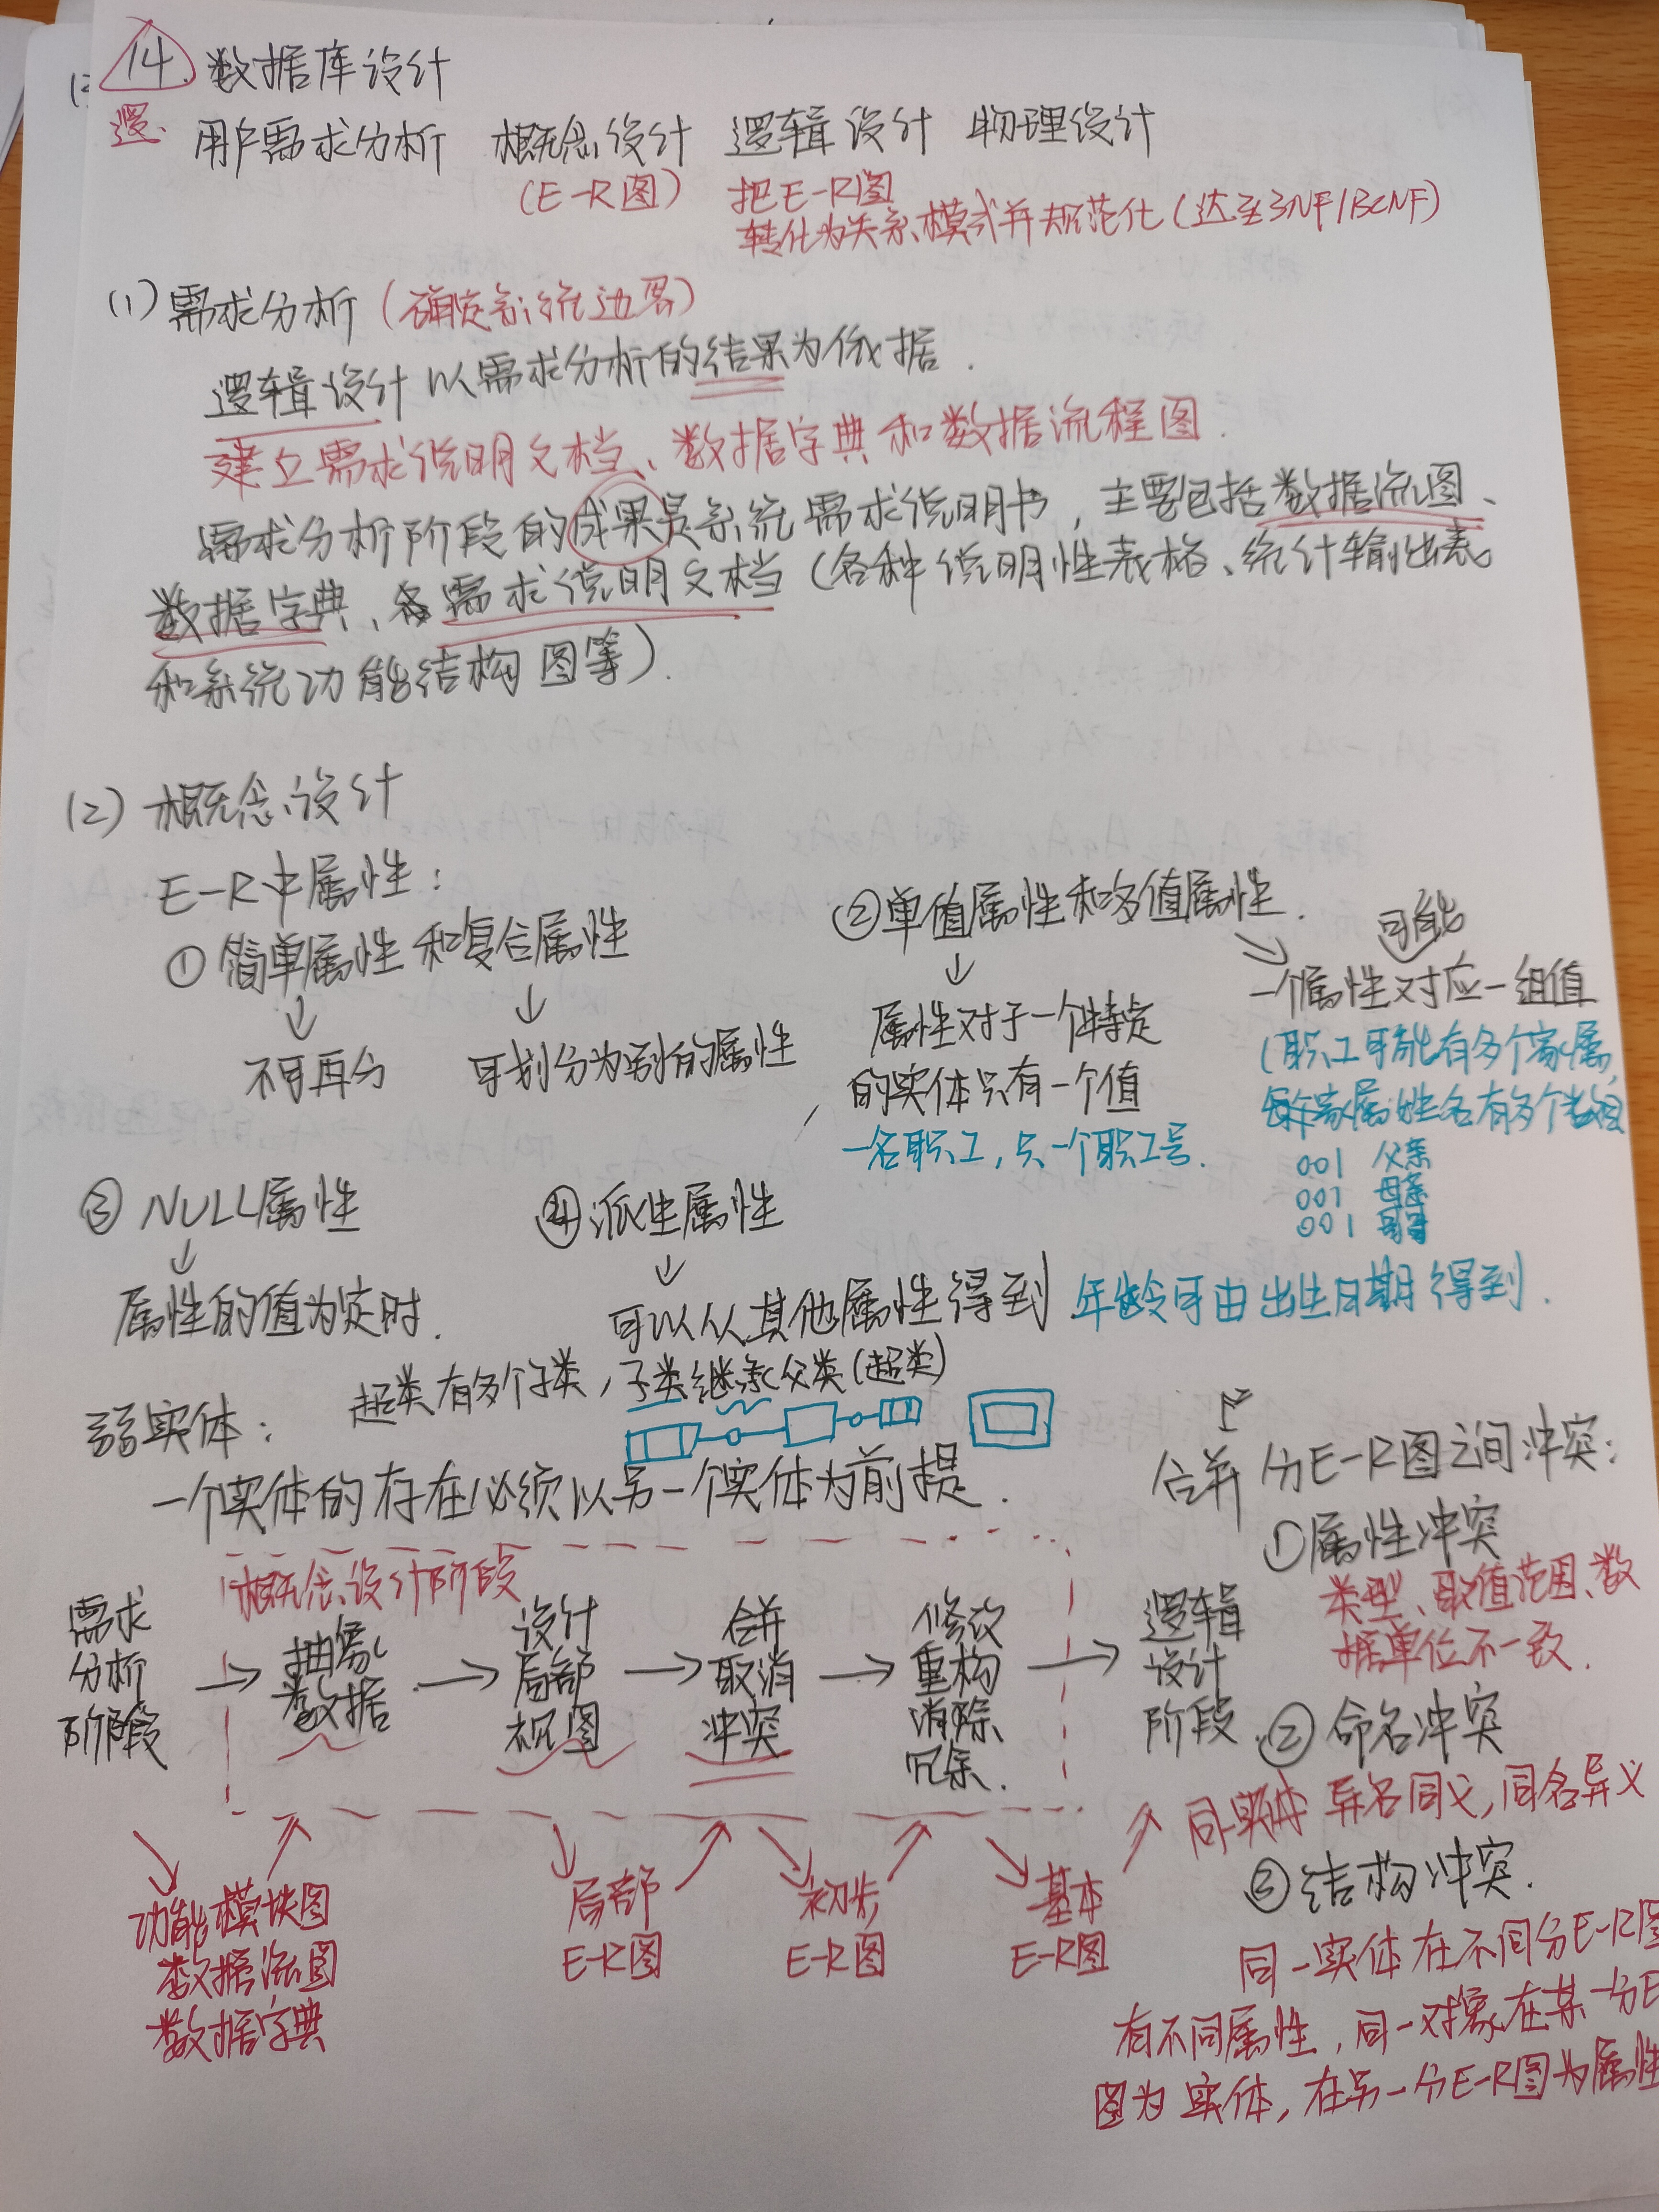 14. 数据库设计
用户需求分析 概念设计 逻辑设计 物理设计
(E-R图) 把E-R图
转化为关系模式并规范化(达到3NF/BCNF)
(1) 需求分析(确定系统边界)
逻辑设计以需求分析的结果为依据.
建立需求说明文档、数据字典和数据流程图.
需求分析阶段的成果是系统需求说明书,主要包括数据流图、
数据字典、各需求说明文档(各种说明性表格、统计输出表
和系统功能结构图等).
(2) 概念设计
E-R中属性:
①简单属性和复合属性
不可再分
可划分为别的属性
②单值属性和多值属性.
属性对于一个特定
的实体只有一个值
一名职工,只一个职工号.
可能
一个属性对应一组值
(职工可能有多个家属,
每个家属姓名有多个数组
001 父亲
001 母亲
001 哥哥
③NULL属性
属性的值为定时.
④派生属性
可以从其他属性得到 年龄可由出生日期得到.
超类有多个子类,子类继承父类(超类)
弱实体:
一个实体的存在必须以另一个实体为前提.
概念设计阶段
需求
分析
阶段
抽象
数据
设计
局部
视图
合并
取消
冲突
修改
重构
消除
冗余.
逻辑
设计
阶段.
功能模块图
数据流图
数据字典
局部
E-R图
初步
E-R图
基本
E-R图
合并 分E-R图之间冲突:
①属性冲突
类型、取值范围、数
据单位不一致.
②命名冲突
同一实体 异名同义,同名异义
③结构冲突.
同一实体在不同分E-R图
有不同属性,同一对象在某一分E
图为实体,在另一分E-R图为属性